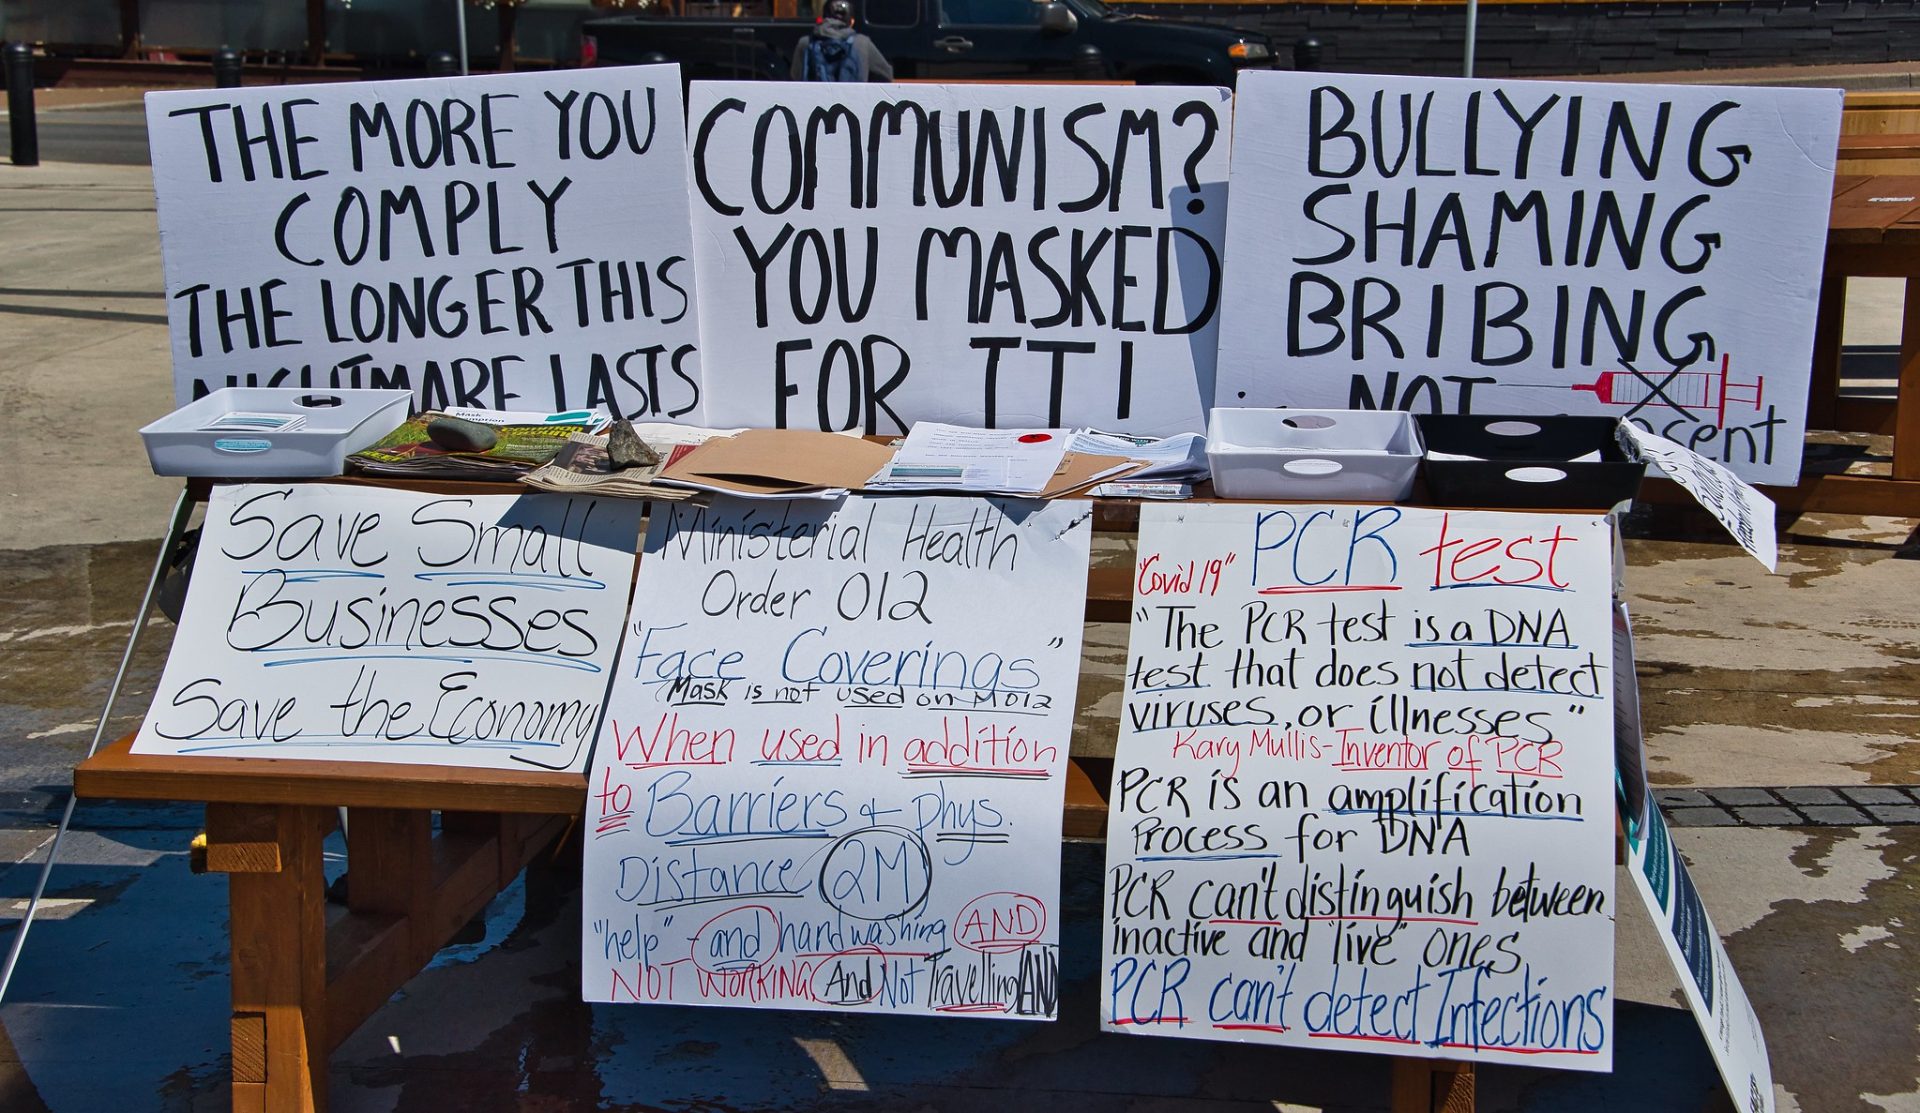 THE MORE YOU
COMPLY
THE LONGER THIS
NIGHTMARE LASTS
COMMUNISM?
YOU MASKED
FOR IT!
BULLYING
SHAMING
BRIBING
NOT
sent
Save Small
Businesses
Save the Economy
Ministerial Health
Order 012
"Face Coverings"
Mask is not used on M012
When used in addition
to Barriers & phys.
Distance 2M
"help" - and handwashing AND
NOT WORKING And Not Travelling AND
"Covid 19" PCR test
"The PCR test is a DNA
test that does not detect
viruses, or illnesses"
Kary Mullis - Inventor of PCR
PCR is an amplification
Process for DNA
PCR can't distinguish between
inactive and "live" ones
PCR can't detect Infections